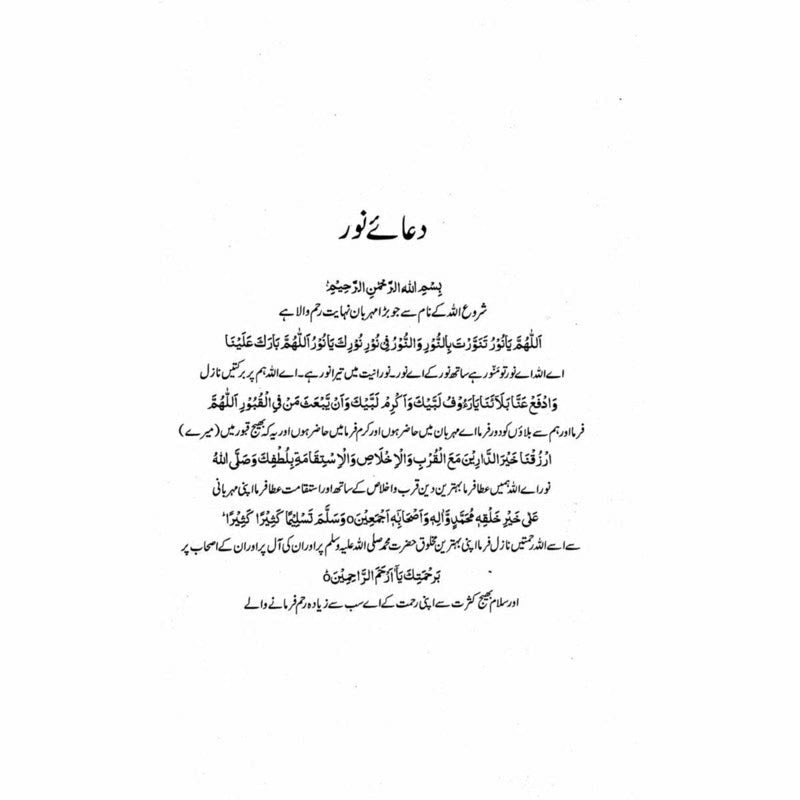 دعائے نور
بِسْمِ اللهِ الرَّحْمٰنِ الرَّحِيْمِ
شروع اللہ کے نام سے جو بڑا مہربان نہایت رحم والا ہے
اَللّٰهُمَّ يَانُوْرُ تَنَوَّرْتَ بِالنُّوْرِ وَالنُّوْرُ فِيْ نُوْرِ نُوْرِكَ يَانُوْرُ اَللّٰهُمَّ بَارَكَ عَلَيْنَا
اے اللہ اے نور تو منّور ہے ساتھ نور کے اے نور۔ نورانیت میں تیرا نور ہے۔ اے اللہ ہم پر برکتیں نازل
وَادْفَعْ عَنَّا بَلَآئَنَا يَارَءُوْفُ لَبَّيْكَ وَاَكْرِمْ لَبَّيْكَ وَاَنْ يَّبْعَثَ مَنْ فِي الْقُبُوْرِ اَللّٰهُمَّ
فرما اور ہم سے بلاؤں کو دور فرما اے مہربان میں حاضر ہوں اور کرم فرما میں حاضر ہوں اور یہ کہ بھیج قبور میں (میرے)
ارْزُقْنَا خَيْرَ الدَّارِيْنَ مَعَ الْقُرْبِ وَالْاِخْلَاصِ وَالْاِسْتِقَامَةِ بِلُطْفِكَ وَصَلَّى اللهُ
نور اے اللہ ہمیں عطا فرما بہترین دین قرب و اخلاص کے ساتھ اور استقامت عطا فرما اپنی مہربانی
عَلٰى خَيْرِ خَلْقِهٖ مُحَمَّدٍ وَّاٰلِهٖ وَاَصْحَابِهٖ اَجْمَعِيْنَ٥ وَسَلَّمَ تَسْلِيْمًا كَثِيْرًا كَثِيْرًا
سے اسے اللہ رحمتیں نازل فرما اپنی بہترین مخلوق حضرت محمد صلی اللہ علیہ وسلم پر اور ان کی آل پر اور ان کے اصحاب پر
بَرَحْمَتِكَ يَآ اَرْحَمَ الرَّاحِمِيْنَ٥
اور سلام بھیج کثرت سے اپنی رحمت کے اے سب سے زیادہ رحم فرمانے والے